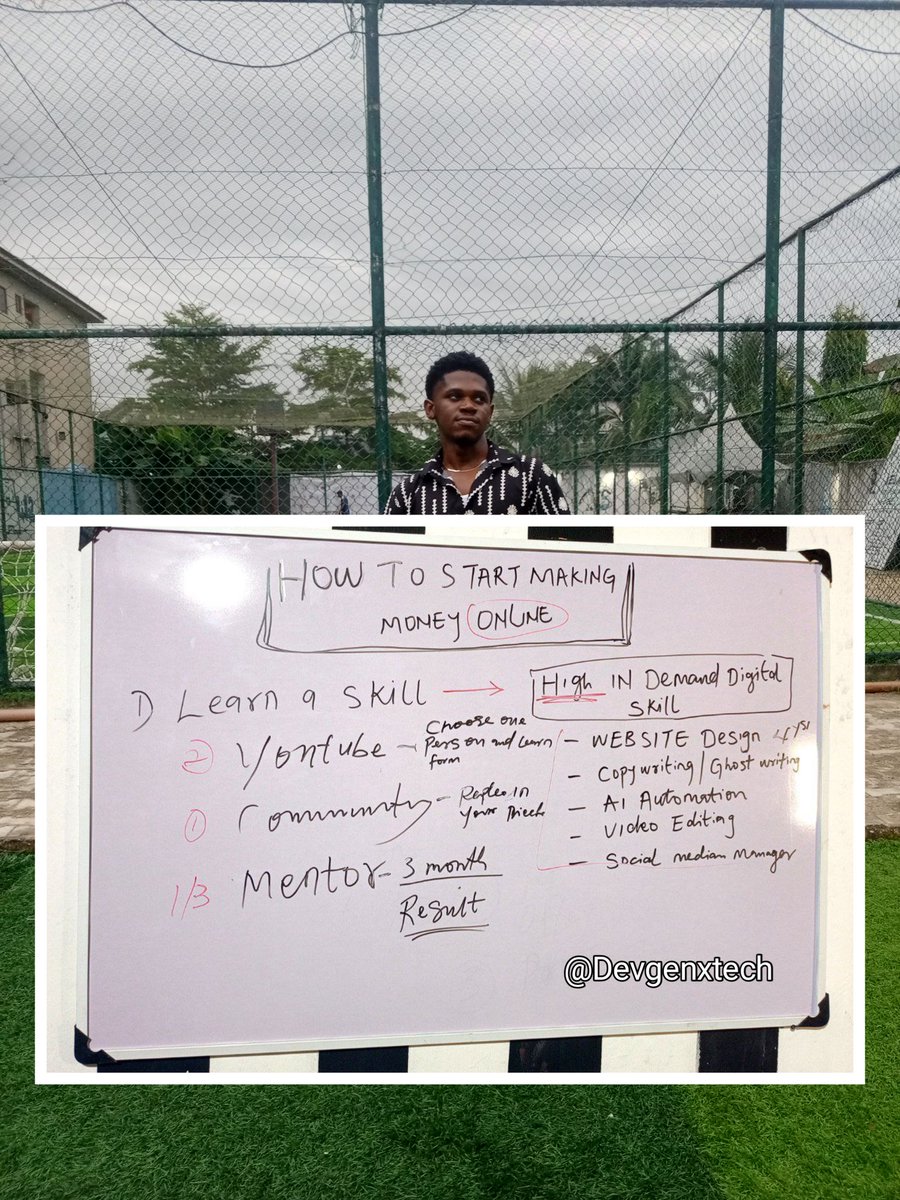 HOW TO START MAKING
MONEY ONLINE
1) Learn a skill → High IN Demand Digital
Skill
② Youtube - Choose one
Person and Learn
form
① Community - in
Your
1/3 Mentor - 3 month
Result
- WEBSITE Design
- Copywriting/Ghost writing
- AI Automation
- Video Editing
- Social median Manager
@Devgenxtech